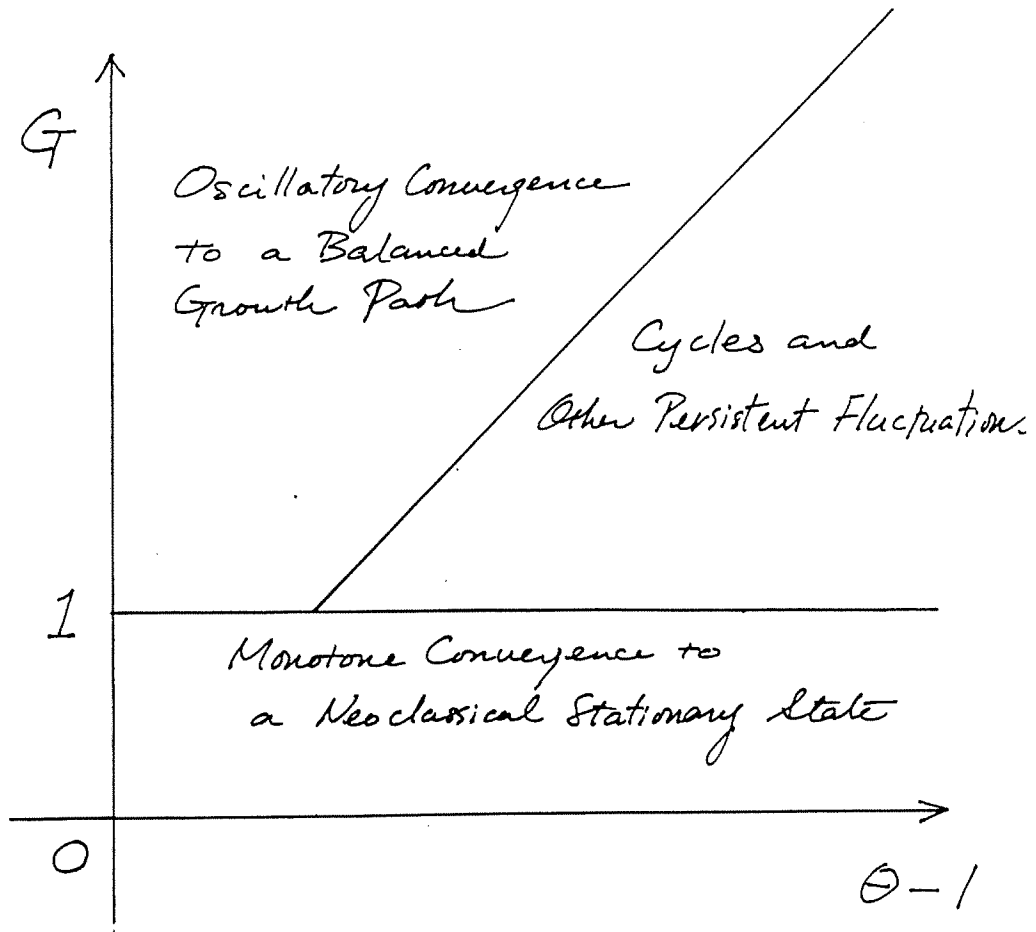 G
Oscillatory Convergence
to a Balanced
Growth Path
Cycles and
Other Persistent Fluctuation.
1
Monotone Convergence to
a Neoclassical Stationary State
0
Θ-1